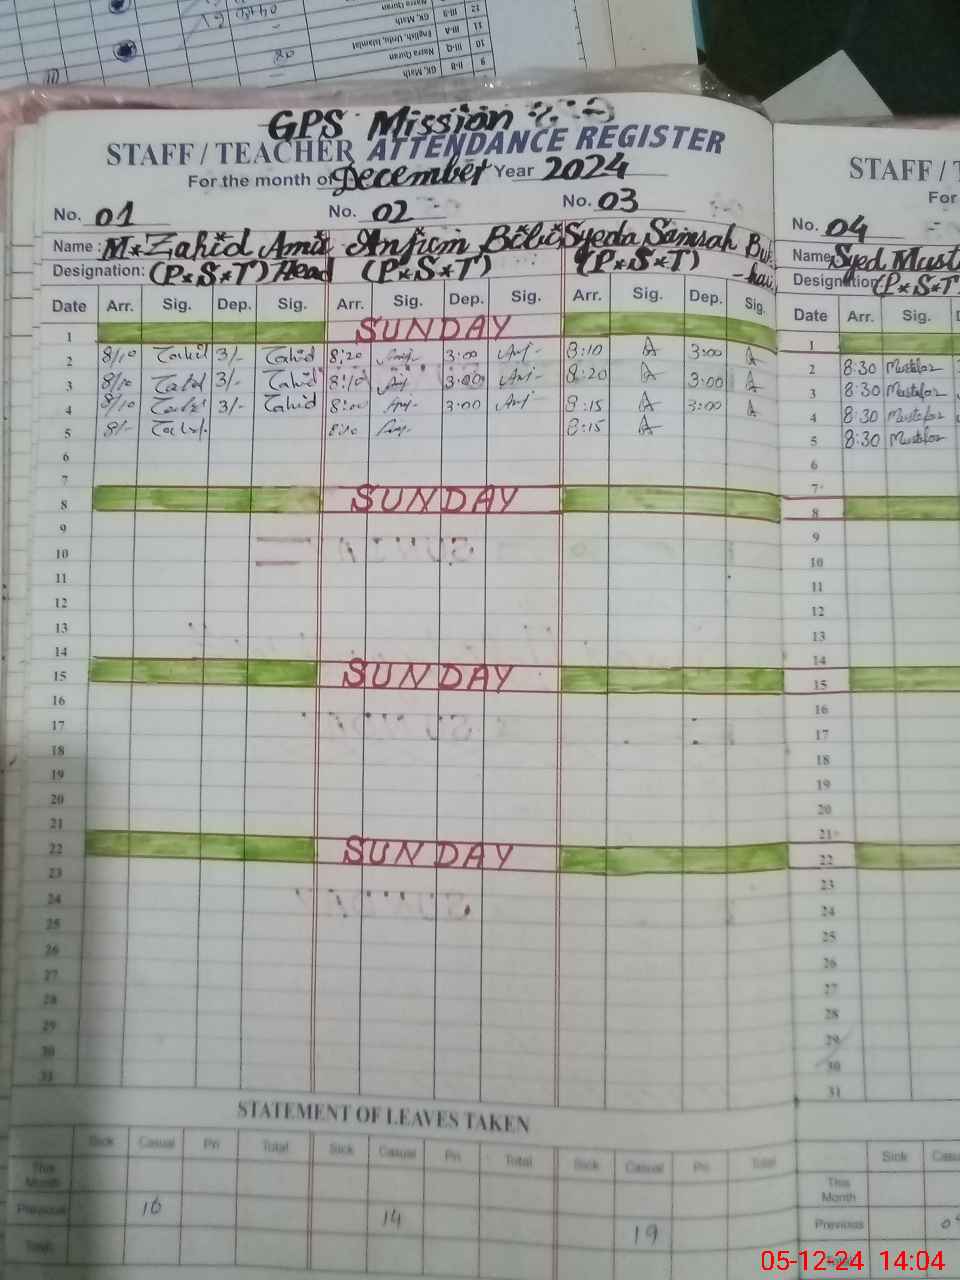 12 III-B Nazra Quran
11 III-A GK, Math
10 III-Q English, Urdu, Islamiat
9 II-B Nazra Quran
GK, Math
GPS Mission
STAFF / TEACHER ATTENDANCE REGISTER
For the month of December Year 2024
No. 01 No. 02 No. 03
Name: M*Zahid Amin Anjum Bibi Syeda Samrah Bukhari
Designation: (P*S*T) Head (P*S*T) (P*S*T)
Date Arr. Sig. Dep. Sig. Arr. Sig. Dep. Sig. Arr. Sig. Dep. Sig.
1 SUNDAY
2 8/10 Zahid 3/- Zahid 8:20 Anj- 3:00 Anj- 8:10 A 3:00 A
3 8/10 Zahid 3/- Zahid 8:10 Anj 3:00 Anj- 8:20 A 3:00 A
4 8/10 Zahid 3/- Zahid 8:00 Anj- 3:00 Anj- 8:15 A 3:00 A
5 8/- Zahid 8:10 Anj- 8:15 A
6
7
8 SUNDAY
9
10
11
12
13
14
15 SUNDAY
16
17
18
19
20
21
22 SUNDAY
23
24
25
26
27
28
29
30
31
STATEMENT OF LEAVES TAKEN
Sick Casual Pri Total Sick Casual Pri Total Sick Casual Pri Total
This Month
Previous 16 14 19
Total
STAFF / T
For
No. 04
Name Syed Must
Designation (P*S*T)
Date Arr. Sig.
1
2 8:30 Mustafa
3 8:30 Mustafa
4 8:30 Mustafa
5 8:30 Mustafa
6
7
8
9
10
11
12
13
14
15
16
17
18
19
20
21
22
23
24
25
26
27
28
29
30
31
Sick Casu
This Month
Previous
Total
05-12-24 14:04